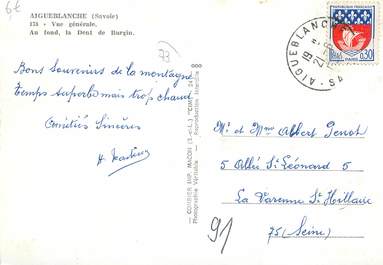 6€
AIGUEBLANCHE (Savoie)
174 - Vue générale.
Au fond, la Dent de Burgin.
73
Bons Souvenirs de la montagne
Temps superbe mais trop chaud
Amitiés Sincères
— COMBIER IMP. MACON (S.-&-L.) "CIM"
Photographie Véritable - Reproduction Interdite
AIGUEBLANCHE
REPUBLIQUE FRANÇAISE
PARIS 0,30
Mr et Mme Albert Genot
5 Allée St Léonard 5
La Varenne St Hillaire
75 (Seine)
91